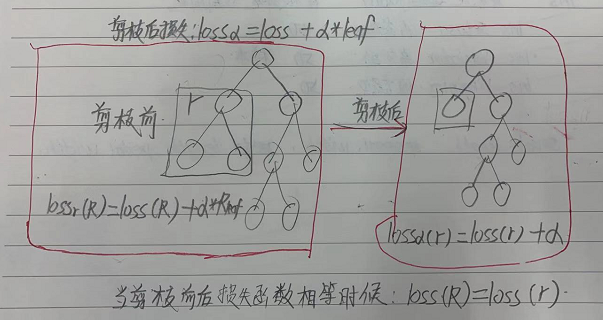 剪枝后损失:lossα=loss + α*leaf
剪枝前
r
剪枝后
lossr(R)=loss(R)+α*Rleaf
lossα(r)=loss(r)+α
当剪枝前后损失函数相等时候: loss(R)=loss(r).